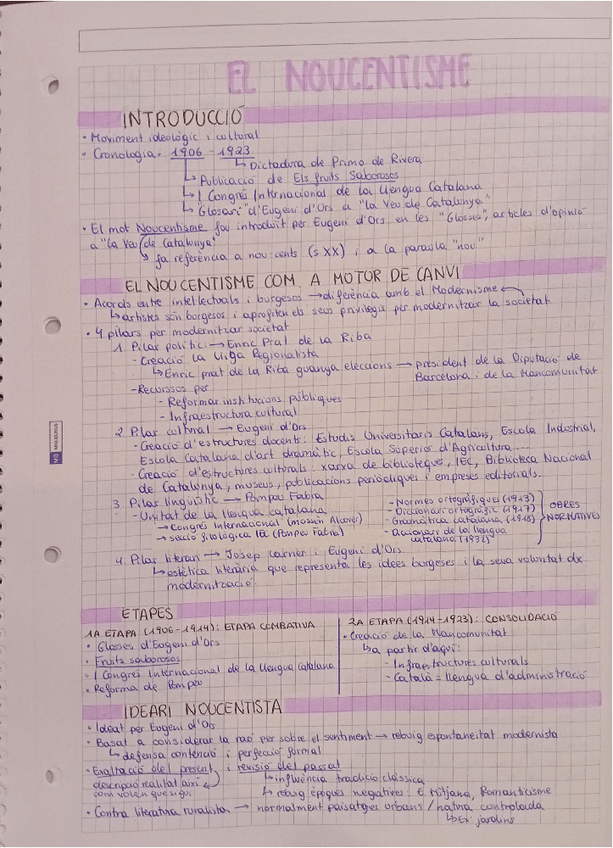 EL NOUCENTISME
INTRODUCCIÓ
• Moviment ideològic i cultural
• Cronologia: 1906 - 1923
↳ Dictadura de Primo de Rivera
↳ Publicació de Els fruits Saborosos
↳ I Congrés Internacional de la Llengua Catalana
↳ "Glosari" d'Eugeni d'Ors a "la Veu de Catalunya"
• El mot Noucentisme fou introduït per Eugeni d'Ors en les "Glosses", articles d'opinió
a "la Veu de Catalunya"
↳ fa referència a nou-cents (s.XX) i a la paraula "nou"
EL NOUCENTISME COM A MOTOR DE CANVI
• Acords entre intellectuals i burgesos → diferència amb el Modernisme
↳ artistes són burgesos i aprofiten els seus privilegis per modernitzar la societat
• 4 pilars per modernitzar societat
1. Pilar polític → Enric Prat de la Riba
- Creació la Lliga Regionalista
↳ Enric prat de la Riba guanya eleccions → president de la Diputació de
Barcelona i de la Mancomunitat
- Recursos per
- Reformar institucions públiques
- Infraestructura cultural
2. Pilar cultural → Eugeni d'Ors
- Creació d'estructures docents: Estudis Universitaris Catalans, Escola Industrial,
Escola Catalana d'art dramàtic, Escola Superior d'Agricultura...
- Creació d'estructures culturals: xarxa de biblioteques, IEC, Biblioteca Nacional
de Catalunya, museus, publicacions periòdiques i empreses editorials.
3. Pilar lingüístic → Pompeu Fabra
- Unitat de la llengua catalana
→ Congrés Internacional (mossèn Alcover)
→ secció filològica (Pompeu Fabra)
- Normes ortogràfiques (1913)
- Diccionari ortogràfic (1917)
- Gramàtica catalana (1918)
- Diccionari de la llengua
catalana (1932)
OBRES
NORMATIVES
4. Pilar literari → Josep carner i Eugeni d'Ors
↳ estètica literària que representa les idees burgeses i la seva voluntat de
modernització.
ETAPES
1A ETAPA (1906-1914): ETAPA COMBATIVA
• Glosses d'Eugeni d'Ors
• Fruits saborosos
• I Congrés Internacional de la Llengua catalana
• Reforma de Pompeu
2A ETAPA (1914-1923): CONSOLIDACIÓ
• Creació de la Mancomunitat
↳ a partir d'aquí:
- Infraestructures culturals
- Català = llengua d'administració
IDEARI NOUCENTISTA
• Ideat per Eugeni d'Ors
• Basat a considerar la raó per sobre el sentiment → rebuig espontaneïtat modernista
↳ defensa contenció i perfecció formal
• Exaltació del present i revisió del passat
descripció realitat així
com volen que sigui
↳ influència tradició clàssica
↳ rebuig èpoques negatives: E. Mitjana, Romanticisme
• Contra literatura ruralista → normalment paisatges urbans / natura controlada
↳ Ex: jardins